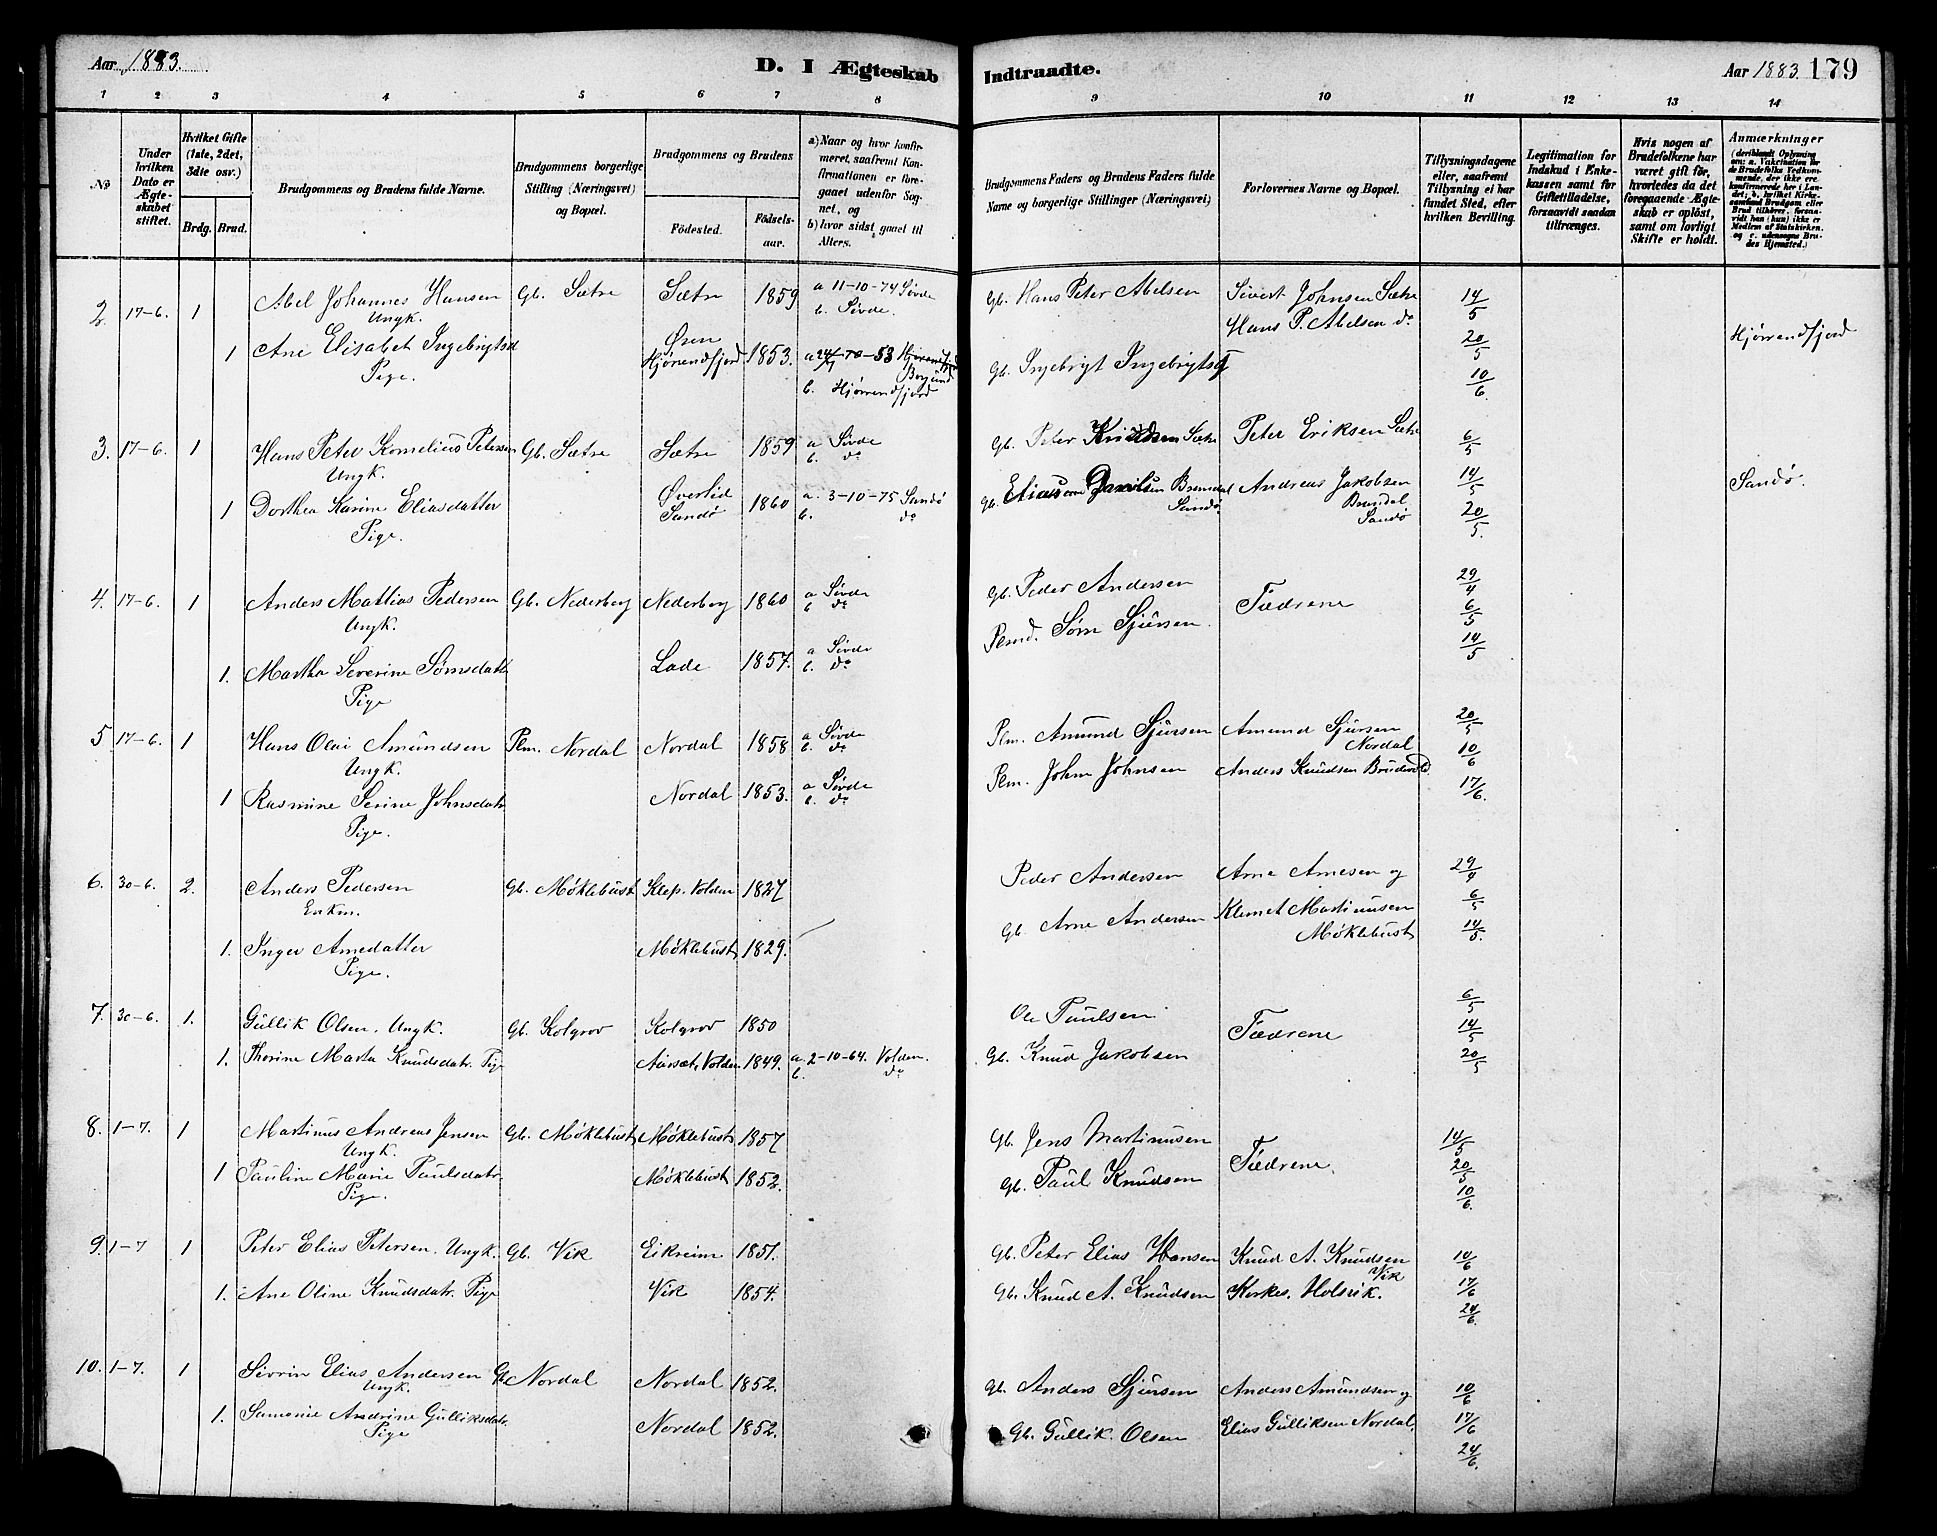 Aar 1883.
D. I Ægteskab Indtraadte.
Aar 1883. 179
1 2 3 4 5 6 7 8 9 10 11 12 13 14
No
Under hvilken Dato er Ægteskabet stiftet.
Hvilket Gifte (1ste, 2det, 3die osv.)
Brdg. Brud.
Brudgommens og Brudens fulde Navne.
Brudgommens borgerlige Stilling (Næringsvei) og Bopæl.
Brudgommens og Brudens
Fødested. Fødselsaar.
a) Naar og hvor konfirmeret, saafremt Konfirmationen er foregaaet udenfor Sognet, og
b) hvor sidst gaaet til Alters.
Brudgommens Faders og Brudens Faders fulde Navne og borgerlige Stillinger (Næringsvei)
Forlovernes Navne og Bopæl.
Tillysningsdagene eller, saafremt Tillysning ei har fundet Sted, efter hvilken Bevilling.
Legitimation for Indskud i Enkekassen samt for Giftetilladelse, forsaavidt saadan tiltrænges.
Hvis nogen af Brudefolkene har været gift før, hvorledes da det foregaaende Ægteskab er opløst, samt om lovligt Skifte er holdt.
Anmærkninger
2. 17-6. 1 Abel Johannes Hansen Gb. Sætre Sætre 1859 a 11-10-74 Søvde Gb. Hans Peter Abelsen Sivert Johnsen Sætre 14/5
Ungk. b. Søvde. Hans P. Abelsen do 20/5
1 Ane Elisabet Ingebrigtsd Øren Hjørrendfjord 1853. Gb. Ingebrigt 10/6 Hjørrendfjord
Pige. b. Hjørrendfjord
3. 17-6. 1 Hans Peter Kornelius Petersen Gb. Sætre Sætre 1859 a Søvde Gb. Peter Knudsen Sætre Peter Eriksen Sætre 6/5
Ungk. b. do 14/5
1 Dorthea Karine Eliasdatter Øverlid Sandø 1860 a. 3-10-75 Sandø Gb. Elias Brandal Sandø Andreas Jakobsen Brandal Sandø 20/5 Sandø.
Pige. b. do
4. 17-6. 1 Anders Mattias Pedersen Gb. Nederberg Nederberg 1860 a Søvde Gb. Peder Andersen Fædrene 29/4
Ungk. b do 6/5
1. Martha Severine Sørnsdatt Lade 1857. a Søvde Plmd. Sørn Sjursen 14/5
Pige b. do
5 17-6. 1 Hans Olai Amundsen Plm. Nordal Nordal 1858 a Søvde Plm. Amund Sjursen Amund Sjursen Nordal 20/5
Ungk. b. do 10/6
1 Rasmine Serine Johnsdatr Nordal 1853. a Søvde Plm. John Johnsen Anders Knudsen Brudevold 17/6.
Pige. b. do
6. 30-6. 2. Anders Pedersen Gb. Møklebust Klep. Volden 1827 Peder Andersen Arne Arnesen og 29/4
Enkm. 6/5
1. Inger Arnedatter Møklebust 1829. Gb. Arne Andersen Klemet Martinusen Møklebust 14/5.
Pige.
7. 30-6. 1. Gullik Olsen. Ungk. Gb. Kolgrov Kolgrov 1850 Ole Paulsen Fædrene 6/5
14/5
1. Thorine Marta Knudsdatr. Pige Aarsæt, Volden 1849. a. 2-10-64. Volden. Gb. Knud Jakobsen 20/5
b. do
8. 1-7. 1 Martinus Andreas Jensen Gb. Møklebust Møklebust 1857 Gb. Jens Martinusen Fædrene. 14/5
Ungk. 20/5
1 Pauline Marie Paulsdatr. Møklebust 1852. Gb. Paul Knudsen 10/6.
Pige.
9. 1-7 1 Peter Elias Petersen. Ungk. Gb. Vik Eikreim 1851. Gb. Peter Elias Hansen Knud A. Knudsen Vik 10/6
1. Ane Oline Knudsdatr. Pige Vik 1854. Gb. Knud A. Knudsen Kirkes. Holsvik. 17/6
24/6
10. 1-7. 1 Sivrin Elias Andersen Gb. Nordal Nordal 1852. Gb. Anders Sjursen Anders Amundsen og 10/6
Ungk.
1. Andrine Gulliksdatr. Nordal 1852. Gb. Gullik Olsen Elias Gulliksen Nordal. 17/6
Pige 24/6.